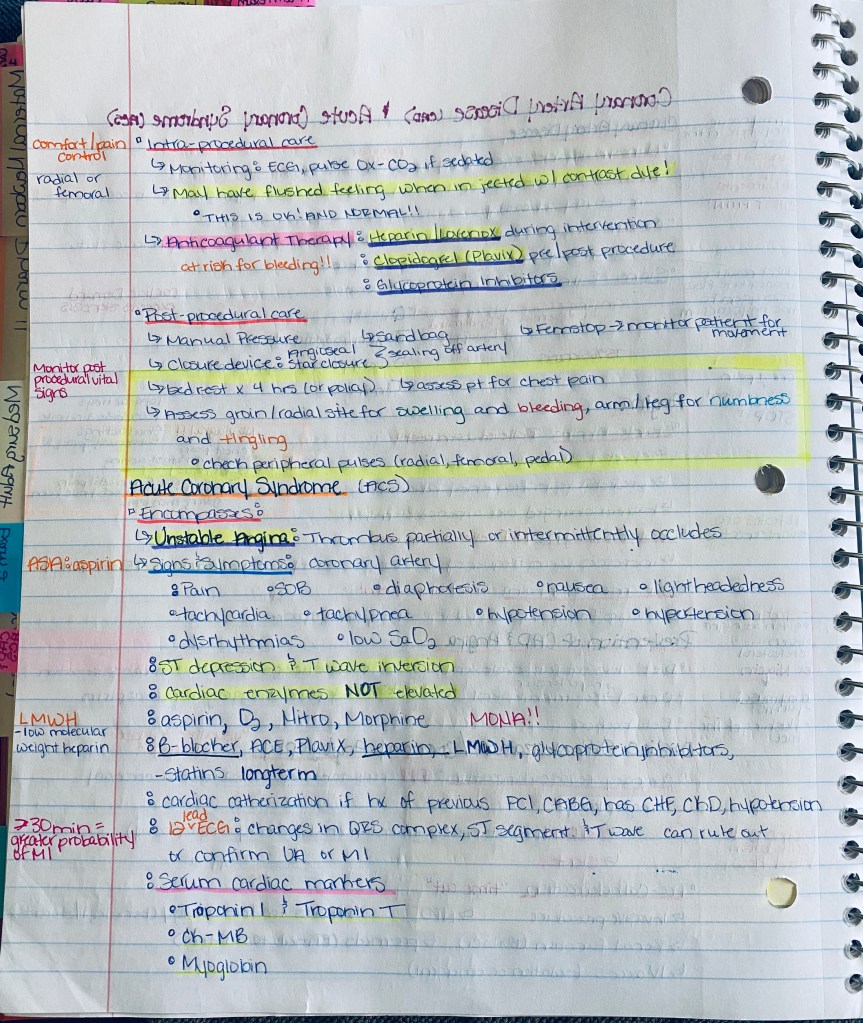 Coronary Artery Disease (CAD) & Acute Coronary Syndrome (ACS)
comfort/pain control
radial or femoral
Intra-procedural care
↳ Monitoring: ECG, pulse Ox-CO2 if sedated
↳ May have flushed feeling when injected w/ contrast dye!
• THIS IS OK! AND NORMAL!!
↳ Anticoagulant Therapy: Heparin/Lovenox during intervention
at risk for bleeding!! : Clopidogrel (Plavix) pre/post procedure
: Glycoprotein Inhibitors
Post-procedural care
↳ Manual Pressure ↳ Sandbag ↳ Femstop → monitor patient for movement
↳ Closure device: Angioseal Starclosure } sealing off artery
Monitor post procedural vital signs
↳ bedrest x 4 hrs (or policy) ↳ assess pt for chest pain
↳ Assess groin/radial site for swelling and bleeding, arm/leg for numbness
and tingling
• check peripheral pulses (radial, femoral, pedal)
Acute Coronary Syndrome (ACS)
Encompasses:
↳ Unstable Angina: Thrombus partially or intermittently occludes
ASA: aspirin
↳ Signs & Symptoms: coronary artery
• Pain • SOB • diaphoresis • nausea • lightheadedness
• tachycardia • tachypnea • hypotension • hypertension
• dysrhythmias • low SaO2
: ST depression & T wave inversion
: cardiac enzymes NOT elevated
: aspirin, O2, Nitro, Morphine MONA!!
LMWH
-low molecular weight heparin
: B-blocker, ACE, Plavix, heparin, LMWH, glycoprotein inhibitors,
-statins longterm
: cardiac catherization if hx of previous PCI, CABG, has CHF, CKD, hypotension
≥30min = greater probability of MI
: 12 lead ECG: changes in QRS complex, ST segment & T wave can rule out
or confirm UA or MI
: Serum cardiac markers
• Troponin I & Troponin T
• Ck-MB
• Myoglobin